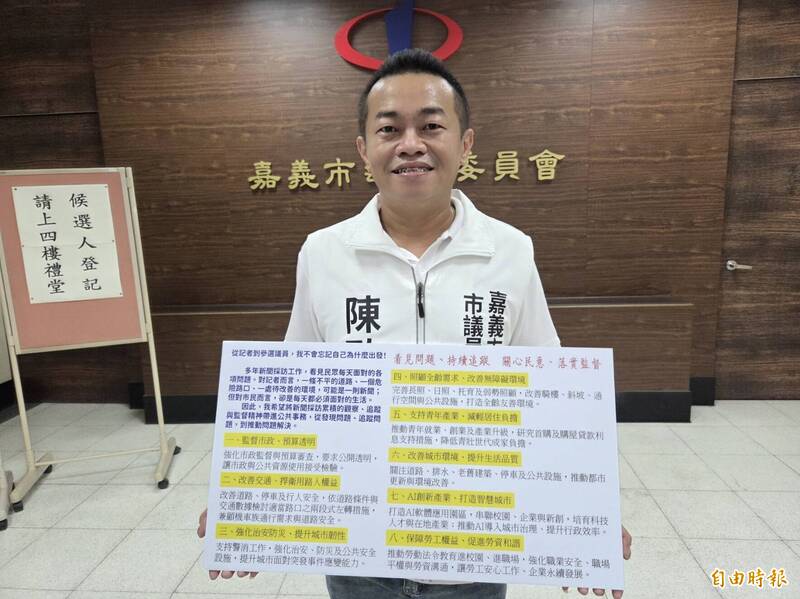 嘉義市 委員會
候選人登記
請上四樓禮堂
陳
嘉義市
市議員
從記者到參選議員，我不會忘記自己為什麼出發！
看見問題、持續追蹤 關心民意、落實監督
多年新聞採訪工作，看見民眾每天面對的各
項問題。對記者而言，一條不平的道路、一個危
險路口、一處待改善的環境，可能是一則新聞；
但對市民而言，卻是每天都必須面對的生活。
因此，我希望將新聞採訪累積的觀察、追蹤
與監督精神帶進公共事務，從發現問題、追蹤問題，
到推動問題解決。
一、監督市政、預算透明
強化市政監督與預算審查，要求公開透明，
讓市政與公共資源使用接受檢驗。
二、改善交通、捍衛用路人權益
改善道路、停車及行人安全，依道路條件與
交通數據檢討適當路口之兩段式左轉措施，
兼顧機車族通行需求與道路安全。
三、強化治安防災、提升城市韌性
支持警消工作，強化治安、防災及公共安全
設施，提升城市面對突發事件應變能力。
四、照顧全齡需求、改善無障礙環境
完善長照、日照、托育及弱勢照顧，改善騎樓、斜坡、通
行空間與公共設施，打造全齡友善環境。
五、支持青年產業、減輕居住負擔
推動青年就業、創業及產業升級，研究首購及購屋貸款利
息支持措施，降低青壯世代成家負擔。
六、改善城市環境、提升生活品質
關注道路、排水、老舊建築、停車及公共設施，推動都市
更新與環境改善。
七、AI創新產業、打造智慧城市
打造AI軟體應用園區，串聯校園、企業與新創，培育科技
人才與在地產業；推動AI導入城市治理、提升行政效率。
八、保障勞工權益、促進勞資和諧
推動勞動法令教育進校園、進職場，強化職業安全、職場
平權與勞資溝通，讓勞工安心工作、企業永續發展。
自由時報